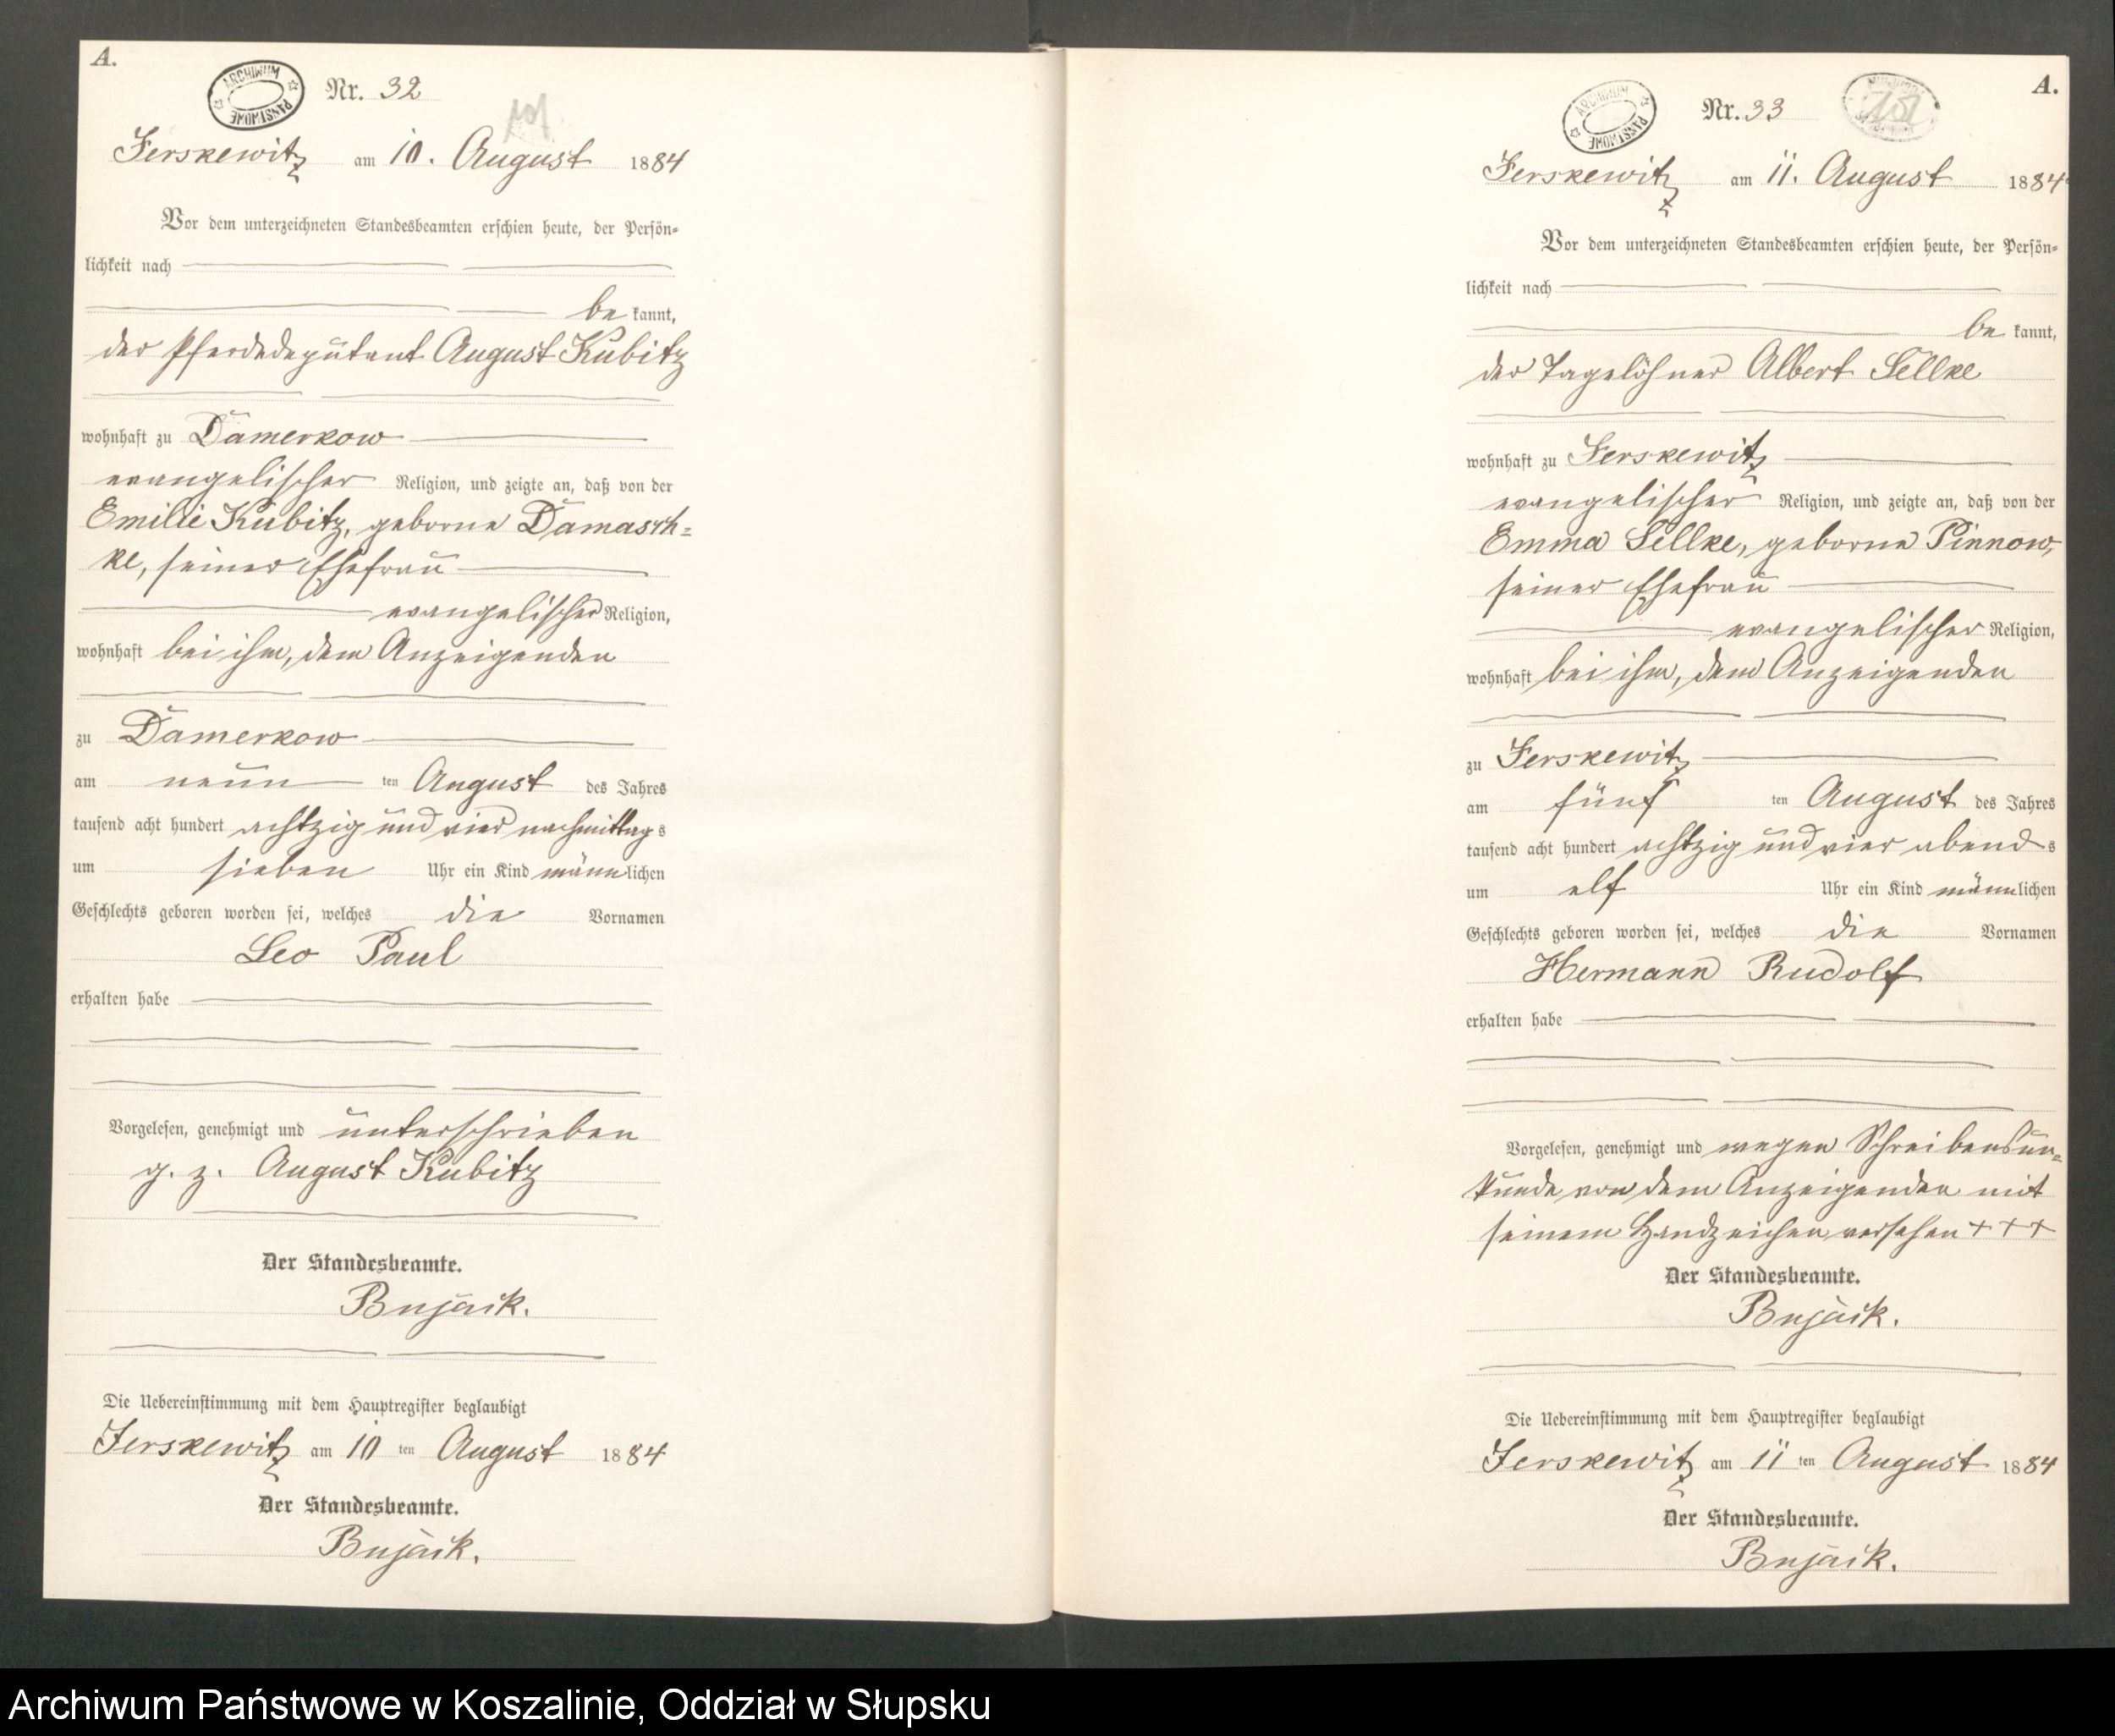 A.
ARCHIWUM PAŃSTWOWE
Nr. 32
Jerskewitz am 10. August 1884
Vor dem unterzeichneten Standesbeamten erschien heute, der Persön-
lichkeit nach
be kannt,
der Pferdedeputant August Kubitz
wohnhaft zu Damerkow
evangelischer Religion, und zeigte an, daß von der
Emilie Kubitz, geborne Damasch-
ke, seiner Ehefrau
evangelischer Religion,
wohnhaft bei ihm, dem Anzeigenden
zu Damerkow
am neun ten August des Jahres
tausend acht hundert achtzig und vier nachmittags
um sieben Uhr ein Kind männlichen
Geschlechts geboren worden sei, welches die Vornamen
Leo Paul
erhalten habe
Vorgelesen, genehmigt und unterschrieben
g. z. August Kubitz
Der Standesbeamte.
Bujack.
Die Uebereinstimmung mit dem Hauptregister beglaubigt
Jerskewitz am 10 ten August 1884
Der Standesbeamte.
Bujack.
A.
ARCHIWUM PAŃSTWOWE
Nr. 33
Jerskewitz am 11. August 1884
Vor dem unterzeichneten Standesbeamten erschien heute, der Persön-
lichkeit nach
be kannt,
der Tagelöhner Albert Sellke
wohnhaft zu Jerskewitz
evangelischer Religion, und zeigte an, daß von der
Emma Sellke, geborne Pinnow,
seiner Ehefrau
evangelischer Religion,
wohnhaft bei ihm, dem Anzeigenden
zu Jerskewitz
am fünf ten August des Jahres
tausend acht hundert achtzig und vier abends
um elf Uhr ein Kind männlichen
Geschlechts geboren worden sei, welches die Vornamen
Hermann Rudolf
erhalten habe
Vorgelesen, genehmigt und wegen Schreibensun-
kunde von dem Anzeigenden mit
seinem Handzeichen versehen + + +
Der Standesbeamte.
Bujack.
Die Uebereinstimmung mit dem Hauptregister beglaubigt
Jerskewitz am 11 ten August 1884
Der Standesbeamte.
Bujack.
Archiwum Państwowe w Koszalinie, Oddział w Słupsku